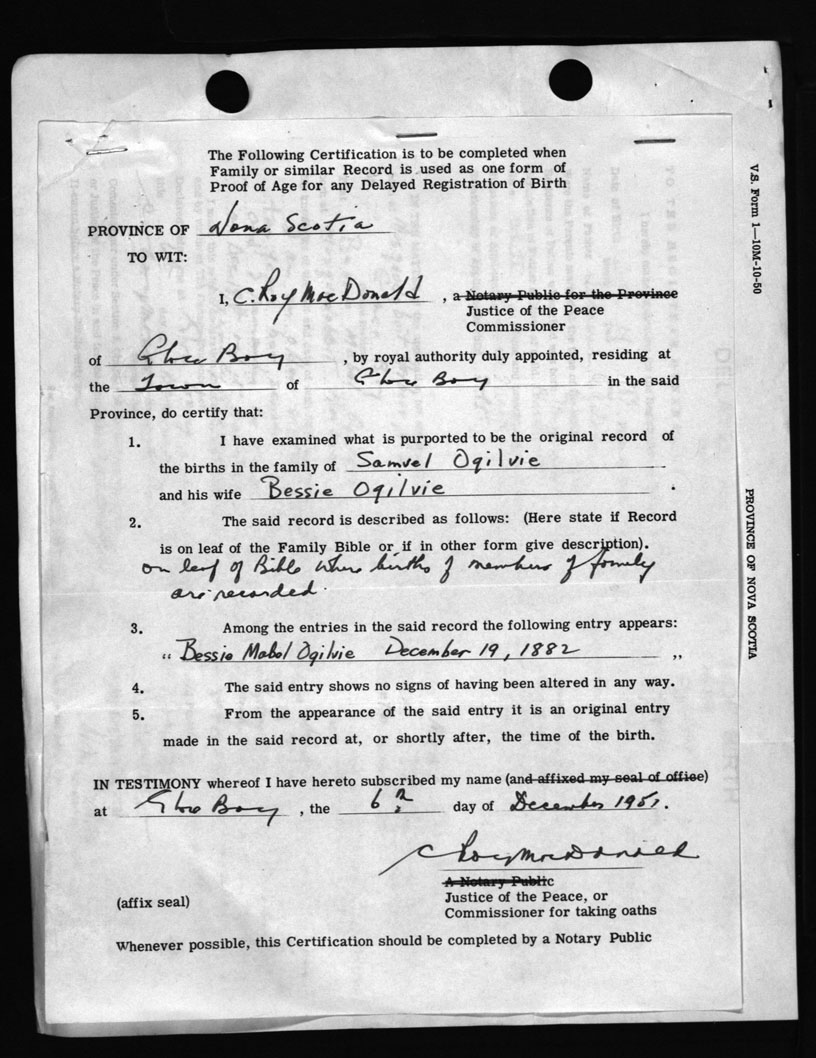 The Following Certification is to be completed when
Family or similar Record is used as one form of
Proof of Age for any Delayed Registration of Birth
PROVINCE OF Nova Scotia
TO WIT:
I, C. Roy MacDonald, a Notary Public for the Province
Justice of the Peace
Commissioner
of Glace Bay, by royal authority duly appointed, residing at
the Town of Glace Bay in the said
Province, do certify that:
1. I have examined what is purported to be the original record of
the births in the family of Samuel Ogilvie
and his wife Bessie Ogilvie.
2. The said record is described as follows: (Here state if Record
is on leaf of the Family Bible or if in other form give description).
on leaf of Bible where births of members of family
are recorded.
3. Among the entries in the said record the following entry appears:
“ Bessie Mabel Ogilvie December 19, 1882 ”
4. The said entry shows no signs of having been altered in any way.
5. From the appearance of the said entry it is an original entry
made in the said record at, or shortly after, the time of the birth.
IN TESTIMONY whereof I have hereto subscribed my name (and affixed my seal of office)
at Glace Bay, the 6th day of December 1951.
C Roy MacDonald
A Notary Public
(affix seal) Justice of the Peace, or
Commissioner for taking oaths
Whenever possible, this Certification should be completed by a Notary Public
V.S. Form 1—10M-10-50
PROVINCE OF NOVA SCOTIA